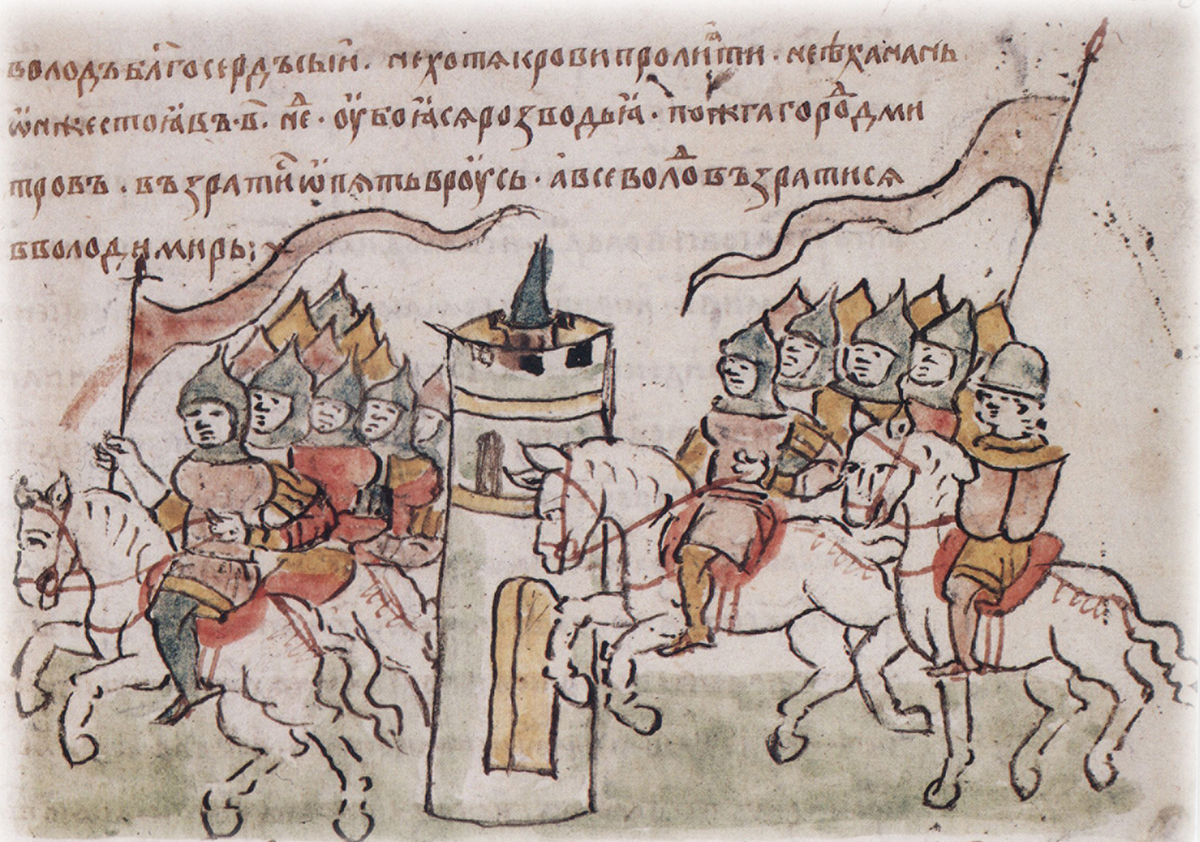 володъ бл҃госердъ сыи · не хотѧ крови пролиꙗти · не ѣха на нь
ѡн же стоꙗвъ · в҃ · неⷣ · ѹбоꙗсѧ розводьꙗ · пожга гороⷣ дми
тровъ · възратисⷭ ѡпѧть в рѹсь · а всеволоⷣ възратисѧ
в володимирь: